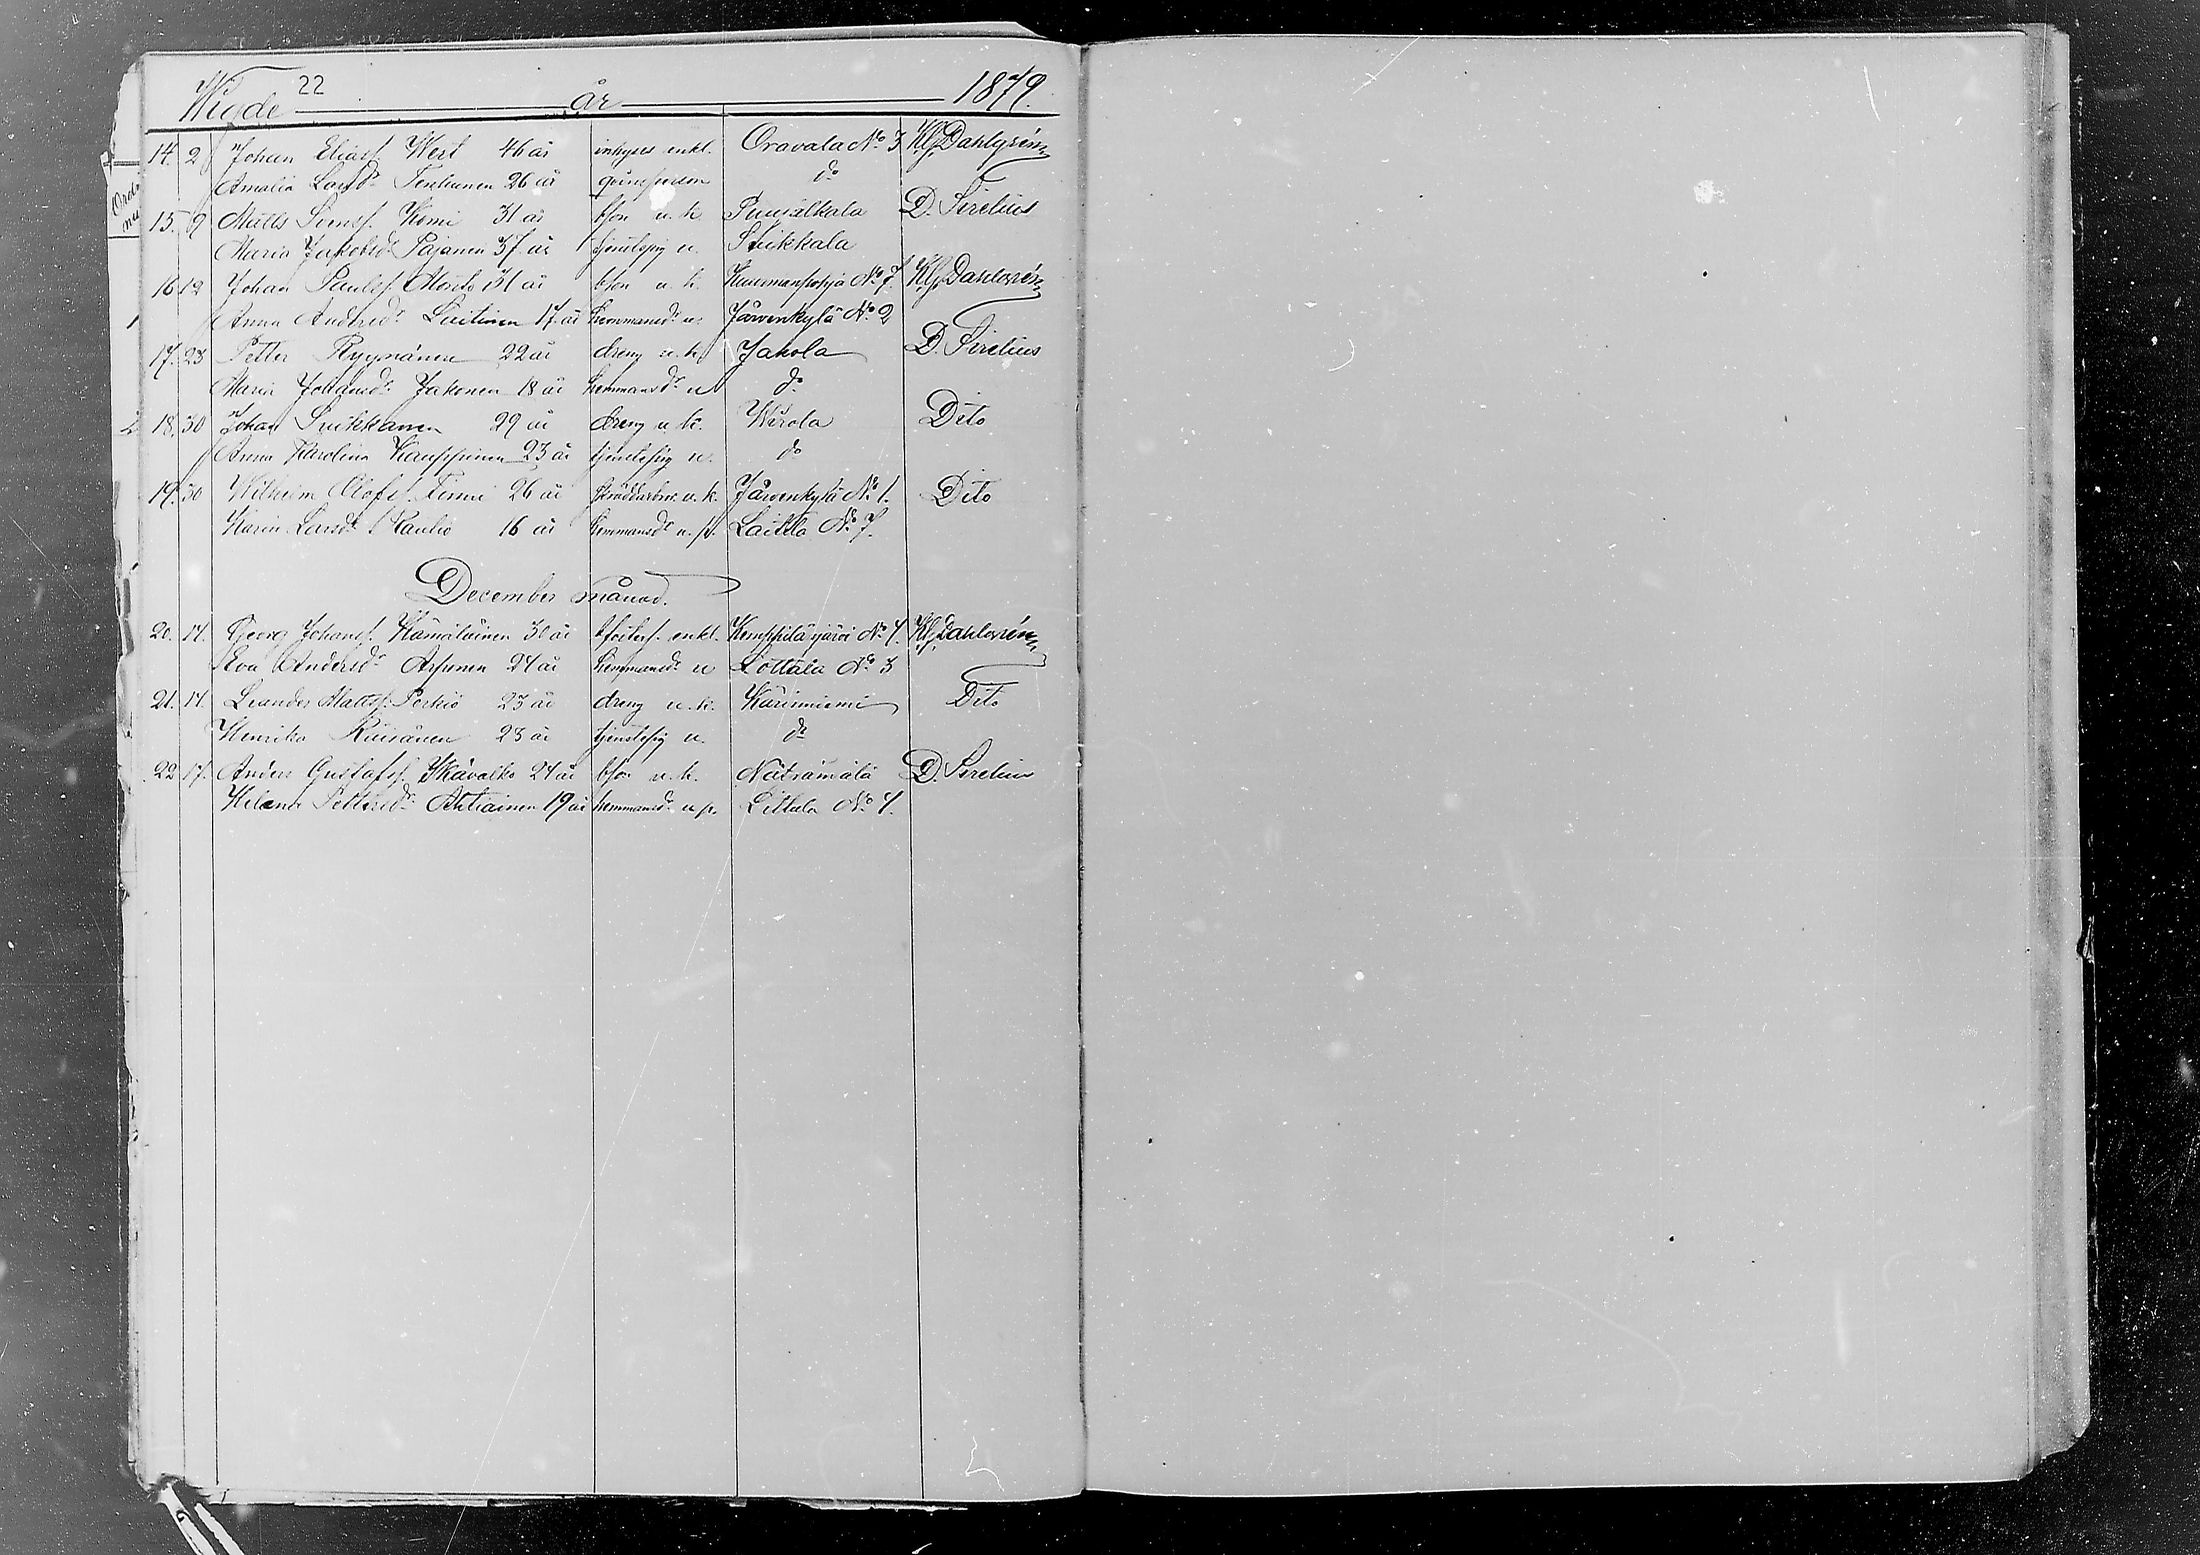 22
Wigde år 1879.
14. 2 Johan Eliass. West 46 år inhyses enkl. Oravala No 3 K.G. Dahlgrén
Amalia Larsdr Tenhunen 26 år qvinsperson do
15. 9 Matts Simss. Komi 31 år bson u.k. Puusalkala D. Sirelius
Maria Jakobsdr Pajanen 37 år tjenstepig u. Suikkala
16. 12 Johan Paulss. 31 år bson u.k. No 7. K.G. Dahlgrén
Anna Andersdr Laitinen 17 år hemmansdr u. Järvenkylä No 2
17. 23 Petter Ryynänen 22 år dreng u.k. Jakola D. Sirelius
Maria Johansdr Jakonen 18 år hemmansdr u do
18. 30 Johan Suikkanen 29 år dreng u.k. Wirola Dito
Anna Karolina Kauppinen 23 år tjenstepig u. do
19. 30 Wilhelm Olofss. Timni 26 år u.k. Järvenkylä No 1. Dito
Karin Larsdr Kaulio 16 år hemmansdr u.p. Laitila No 7.
December månad.
20. 14. Georg Johanss. Hämäläinen 30 år enkl. Kemppilänjärvi No 4. K.G. Dahlgrén
Eva Andersdr Arponen 24 år hemmansdr u Lottala No 3
21. 14. Leander Mattss. Perhiö 23 år dreng u.k. Kärinniemi Dito
Henrika Räisänen 23 år tjenstepig u. do
22 17. Anders Gustafss. Kävalko 24 år bson u.k. Näträmälä D. Sirelius
Helena Pettersdr Ahtiainen 19 år hemmansdr u.p. Littala No 4.